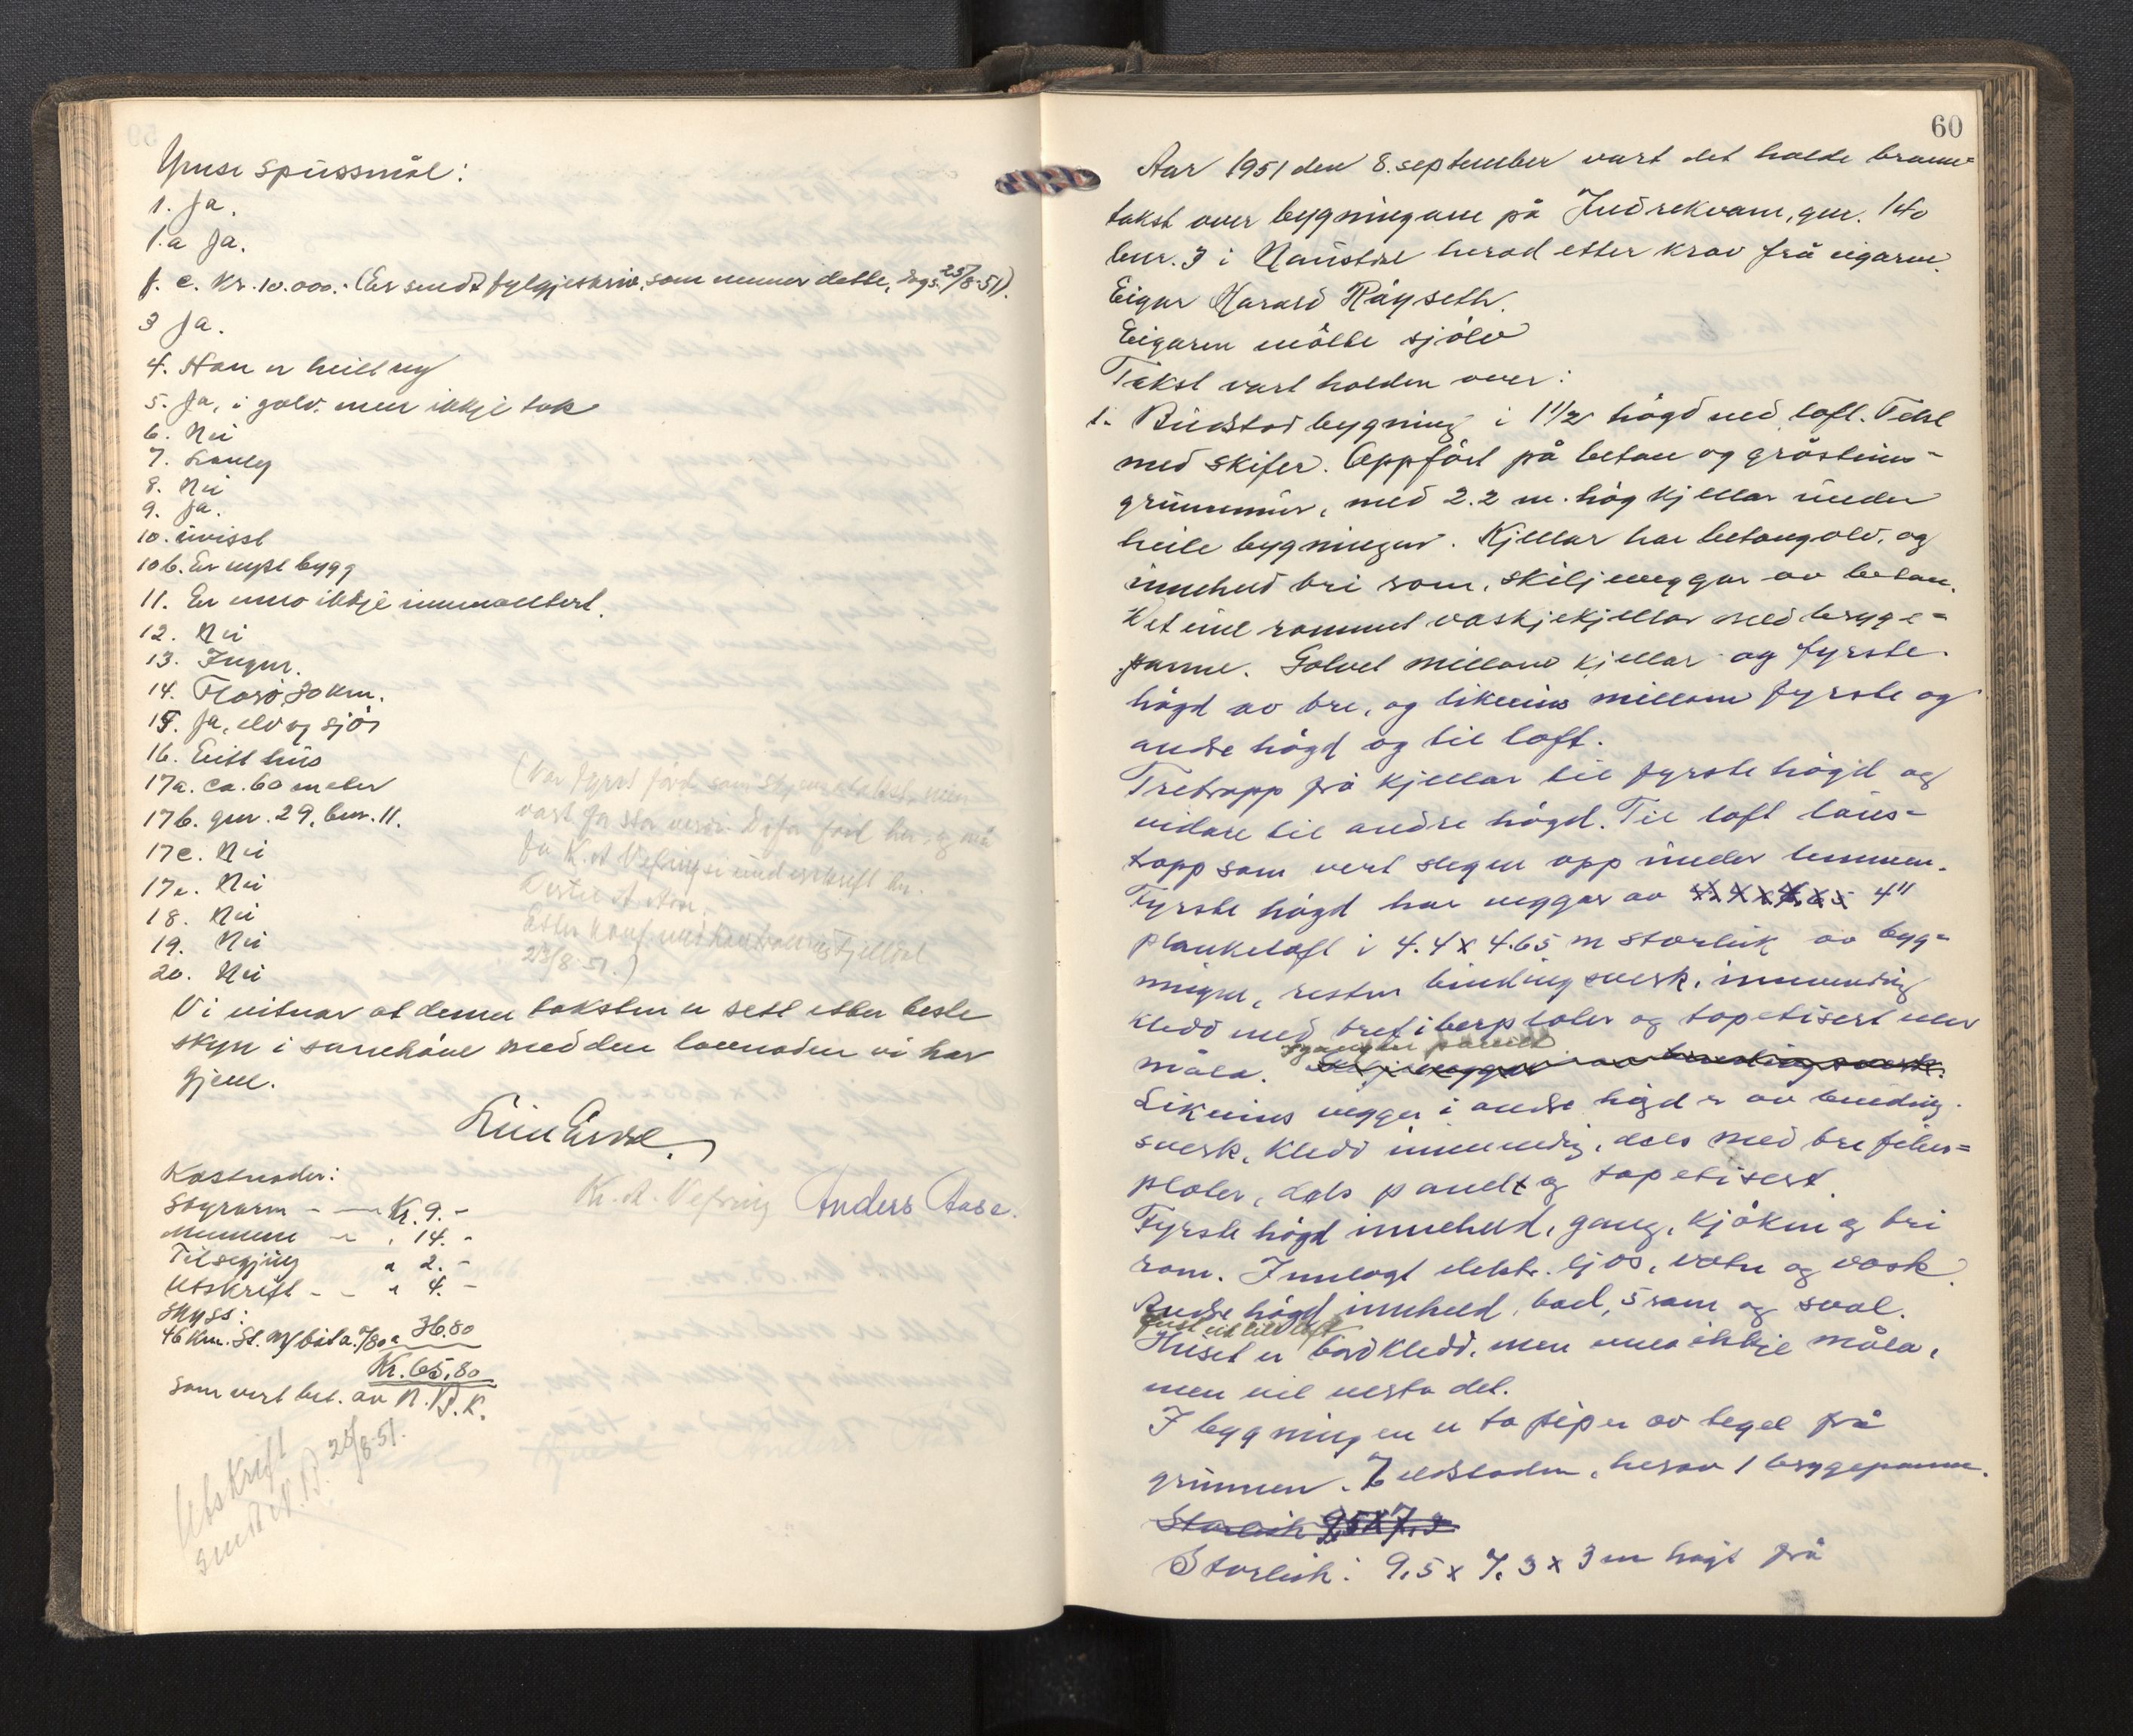 Ymse spursmål:
1. Ja.
1.a Ja.
f. c. Kr. 10.000.- (Er sendt fylgjeskriv, som nemner dette, dags. 25/8-51).
3 Ja.
4. Han er heilt ny
5. Ja, i golv, men ikkje tak
6. Nei
7. Lauleg
8. Nei
9. Ja.
10. uvisst
10b. Er nytt bygg
11. Er enno ikkje innmontert.
12. Nei
13. Ingen.
14. Florø, 30 km.
15. Ja, elv og sjø
16. Eitt hus
17a. ca. 60 meter
17b. gnr. 29, bnr. 11.
17c. Nei
17e. Nei
18. Nei
19. Nei
20. Nei
(Var fyrst ført som skjemataket, men
vart for stor verdi. Difor ført her og må
få K. A. Vefring si underskrift her.
Etter konf. med kontrollør Fjelldal
23/8-51.)
Vi vitnar at denne taksten er sett etter beste
skyn i samhøve med den lovnaden vi har
gjeve.
Kr. A. Vefring Anders Aase.
Kostnader:
Styraren - - Kr. 9.-
Mennene - " 14.-
Tilsegjing " 2.-
Utskrift - - " 4.-
Skyss:
46 km. 36.80
Kr. 65,80
som vert bet. av N. B. K.
Utskrift
sendt N. B. 25/8-51.
60
Aar 1951 den 8. september vart det halde brann=
takst over bygningane på Indrekvam, gnr. 140
bnr. 3 i Naustdal herad etter krav frå eigaren.
Eigar Harald Røyseth.
Eigaren møtte sjølv
Takst vart halden over:
1. Budstadbygning i 1 1/2 høgd med loft. Tekt
med skifer. Oppført på betong og gråsteins-
grunnmur, med 2.2 m. høg kjellar under
heile bygningen. Kjellar har betonggolv, og
inneheld tri rom, skiljeveggar av betong.
Det eine rommet vaskjekjellar med brygge=
panne. Golvet millom kjellar og fyrste
høgd av tre, og likeeins millom fyrste og
andre høgd og til loft.
Tretrapp frå kjellar til fyrste høgd og
vidare til andre høgd. Til loft laus-
trapp som vert slegen opp under lemmen.
Fyrste høgd har veggar av 4"
planketoft i 4.4 x 4.65 m storleik av byg=
ningen, resten bindingsverk, innvendig
kledd med trefiberplater og tapetisert eller
gangen panelt
måla. Skiljeveggar av bindingsverk.
Likeeins vegger i andre høgd er av binding-
sverk, kledd innvendig, dels med trefiber=
plater, dels panelt og tapetisert.
Fyrste høgd inneheld, gang, kjøken og tri
rom. Innlagt elektr. ljos, vatn og vask.
Andre høgd inneheld, bad, 5 rom og sval.
Huset er bordkledd, men enno ikkje måla,
men vil verta det.
I bygningen er to piper av tegl frå
grunnen. 7 eldstader, herav 1 bryggepanne.
Storleik 9,5 x 7,3
Storleik: 9,5 x 7,3 x 3 m høgt frå